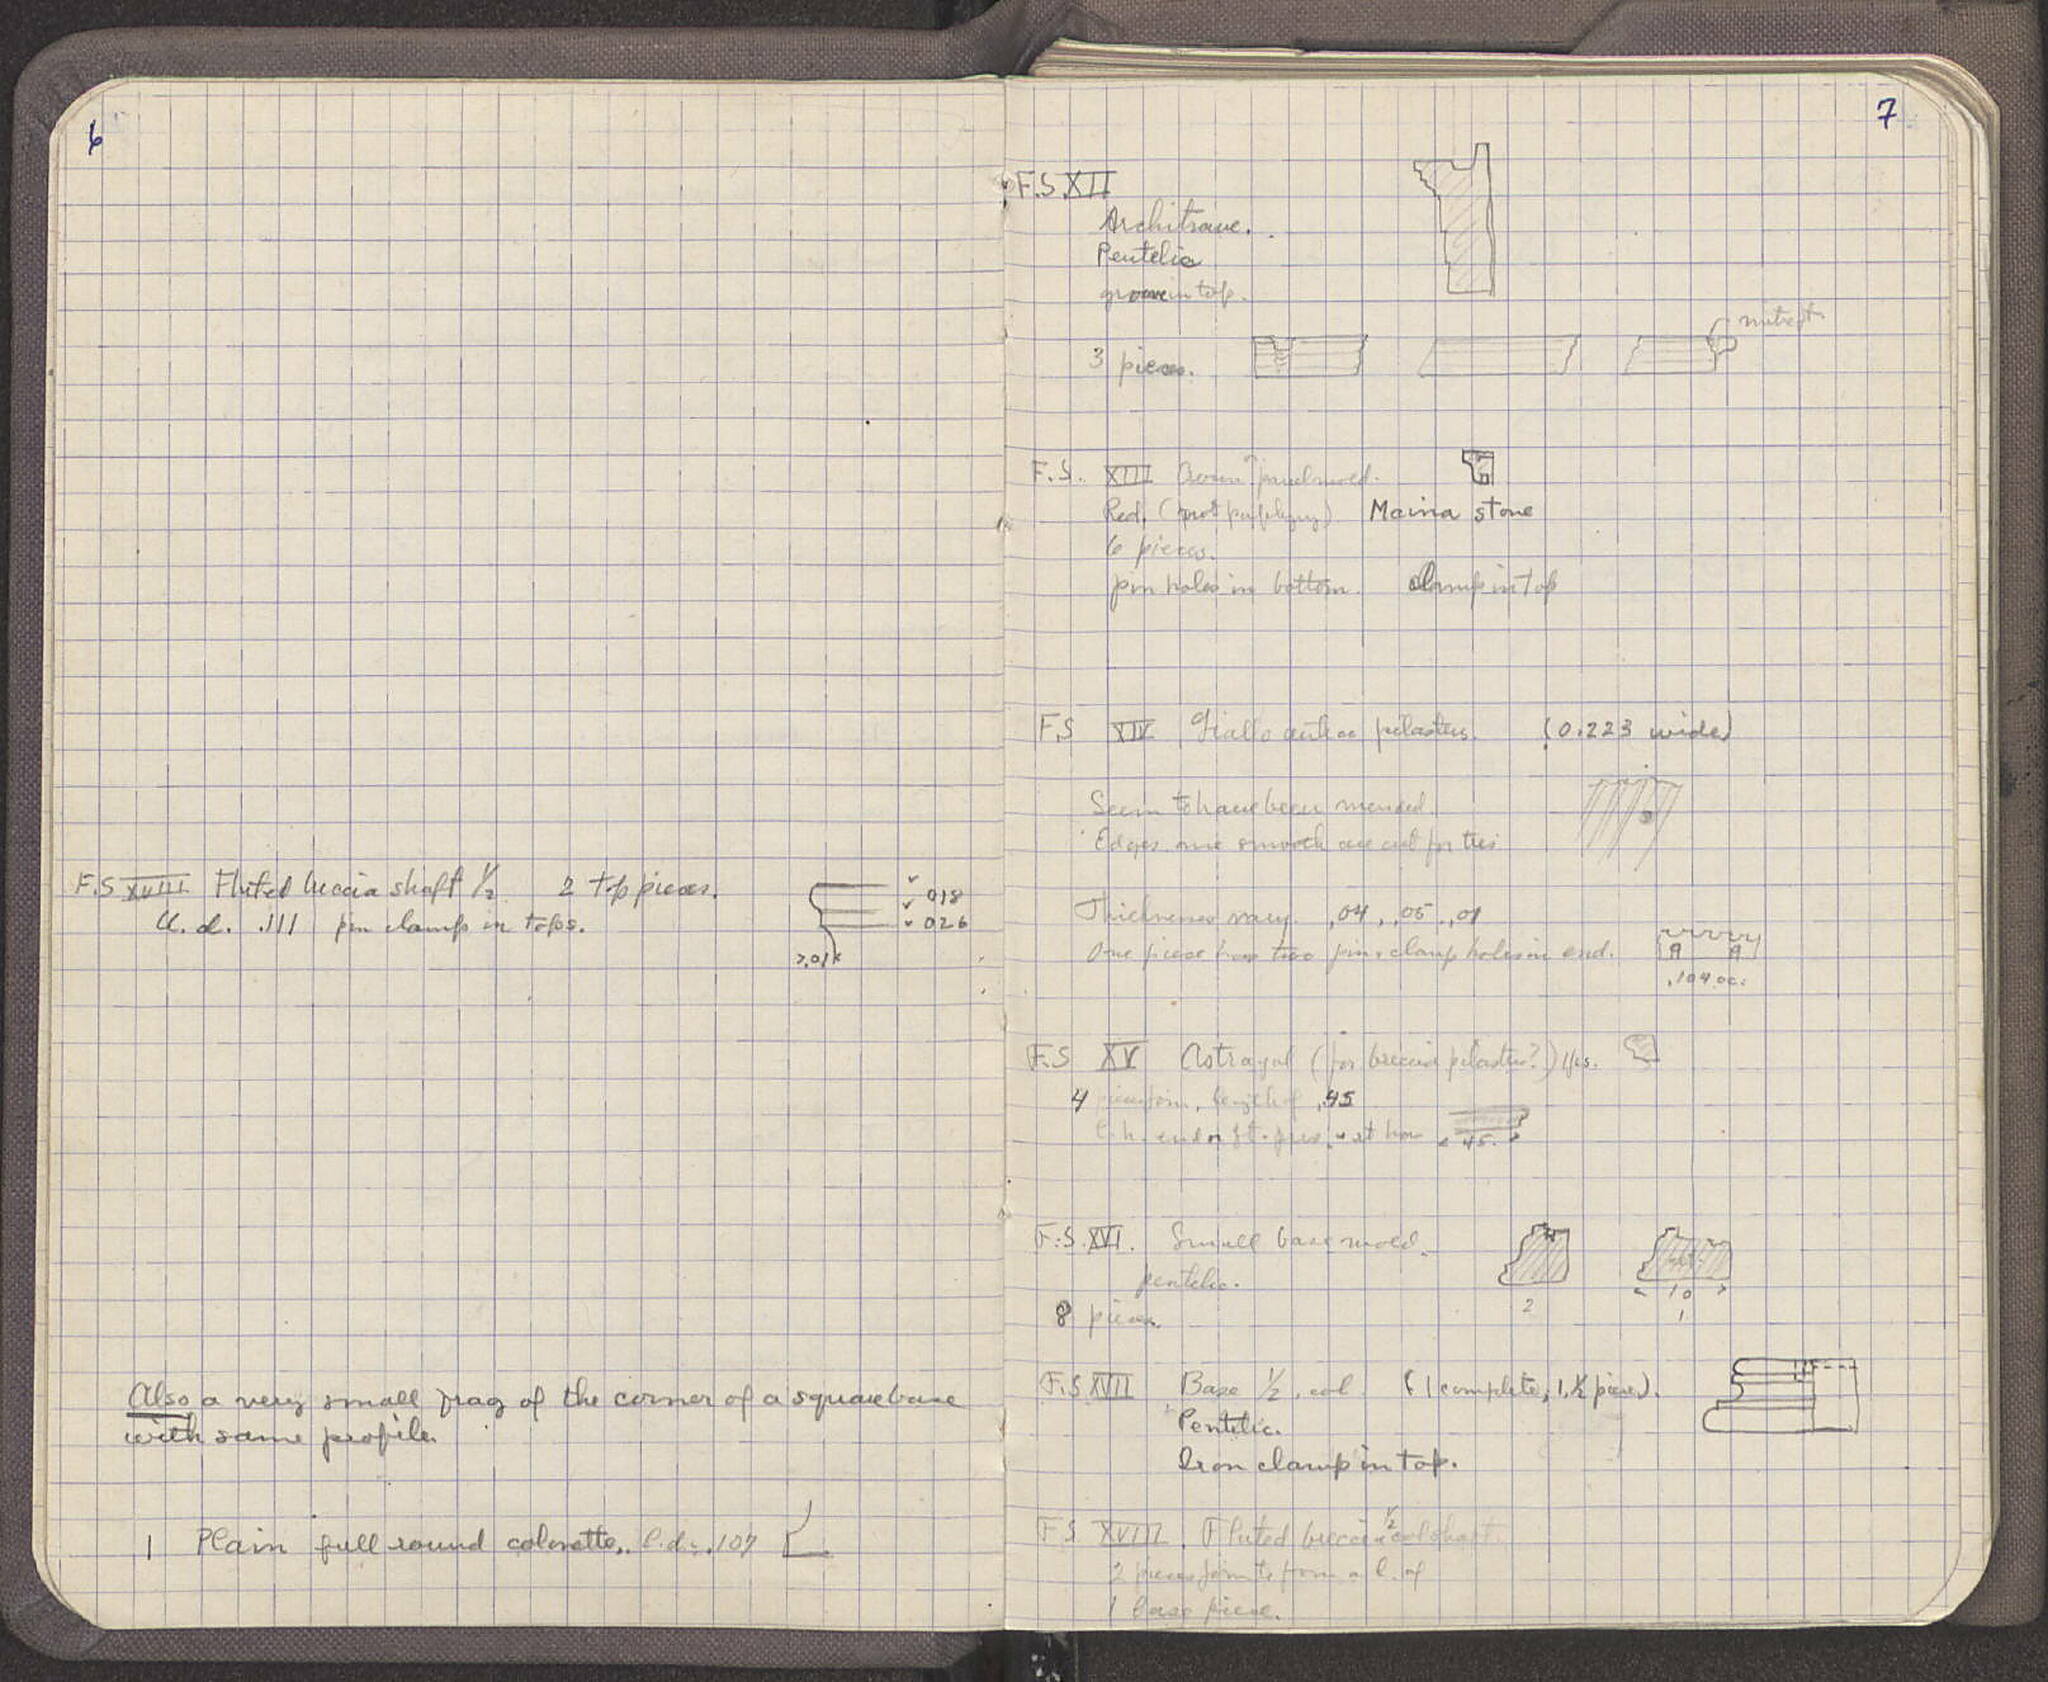 6
F.S XVIII Fluted breccia shaft 1/2 2 top pieces.
U. d. .111 pin clamp in tops.
018
026
.01
Also a very small frag of the corner of a square base
with same profile.
1 Plain full round colonette. l.d. .107
7
F.S. XII
Architrave.
Pentelic
groove in top.
3 pieces.
F.S. XIII Crown panel mold.
Red, (not porphyry) Maina stone
6 pieces.
pin holes in bottom. clamp in top
F.S XIV Giallo antico pilasters. (0.223 wide)
Seem to have been mended.
Edges one smooth one cut for
Thicknesses vary. .04, .05, .01
One piece has two pin & clamp holes in end.
.104 oc.
F.S XV Astragal (for breccia pilaster?) Yes.
4 pieces join, length of .45
45.
F.S. XVI. Small base mold.
pentelic.
8 pieces.
2
10
1
F.S XVII Base 1/2 col (1 complete, 1, 1/2 piece).
Pentelic.
Iron clamp in top.
F.S. XVIII. Fluted breccia 1/2 col shaft.
2 pieces join to form a l. of
1 base piece.